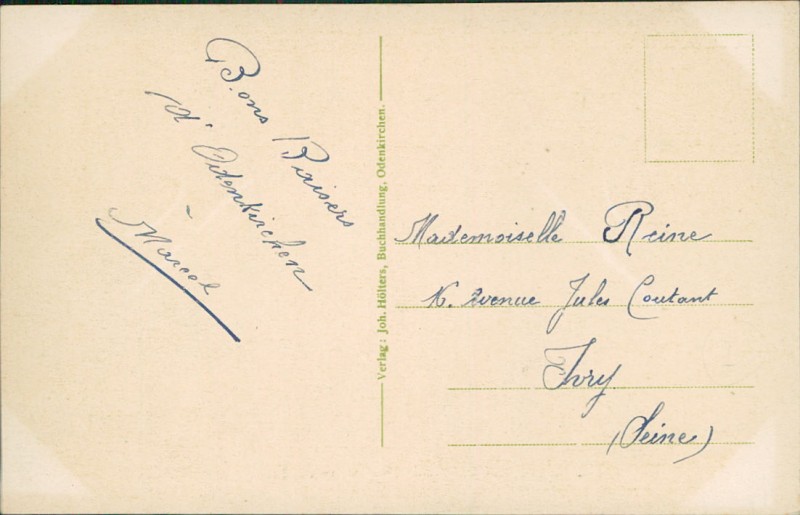 Bons Baisers
d'Odenkirchen
Marcel
Verlag: Joh. Hölters, Buchhandlung, Odenkirchen.
Mademoiselle Reine
Avenue Jules Coutant
Ivry
(Seine)